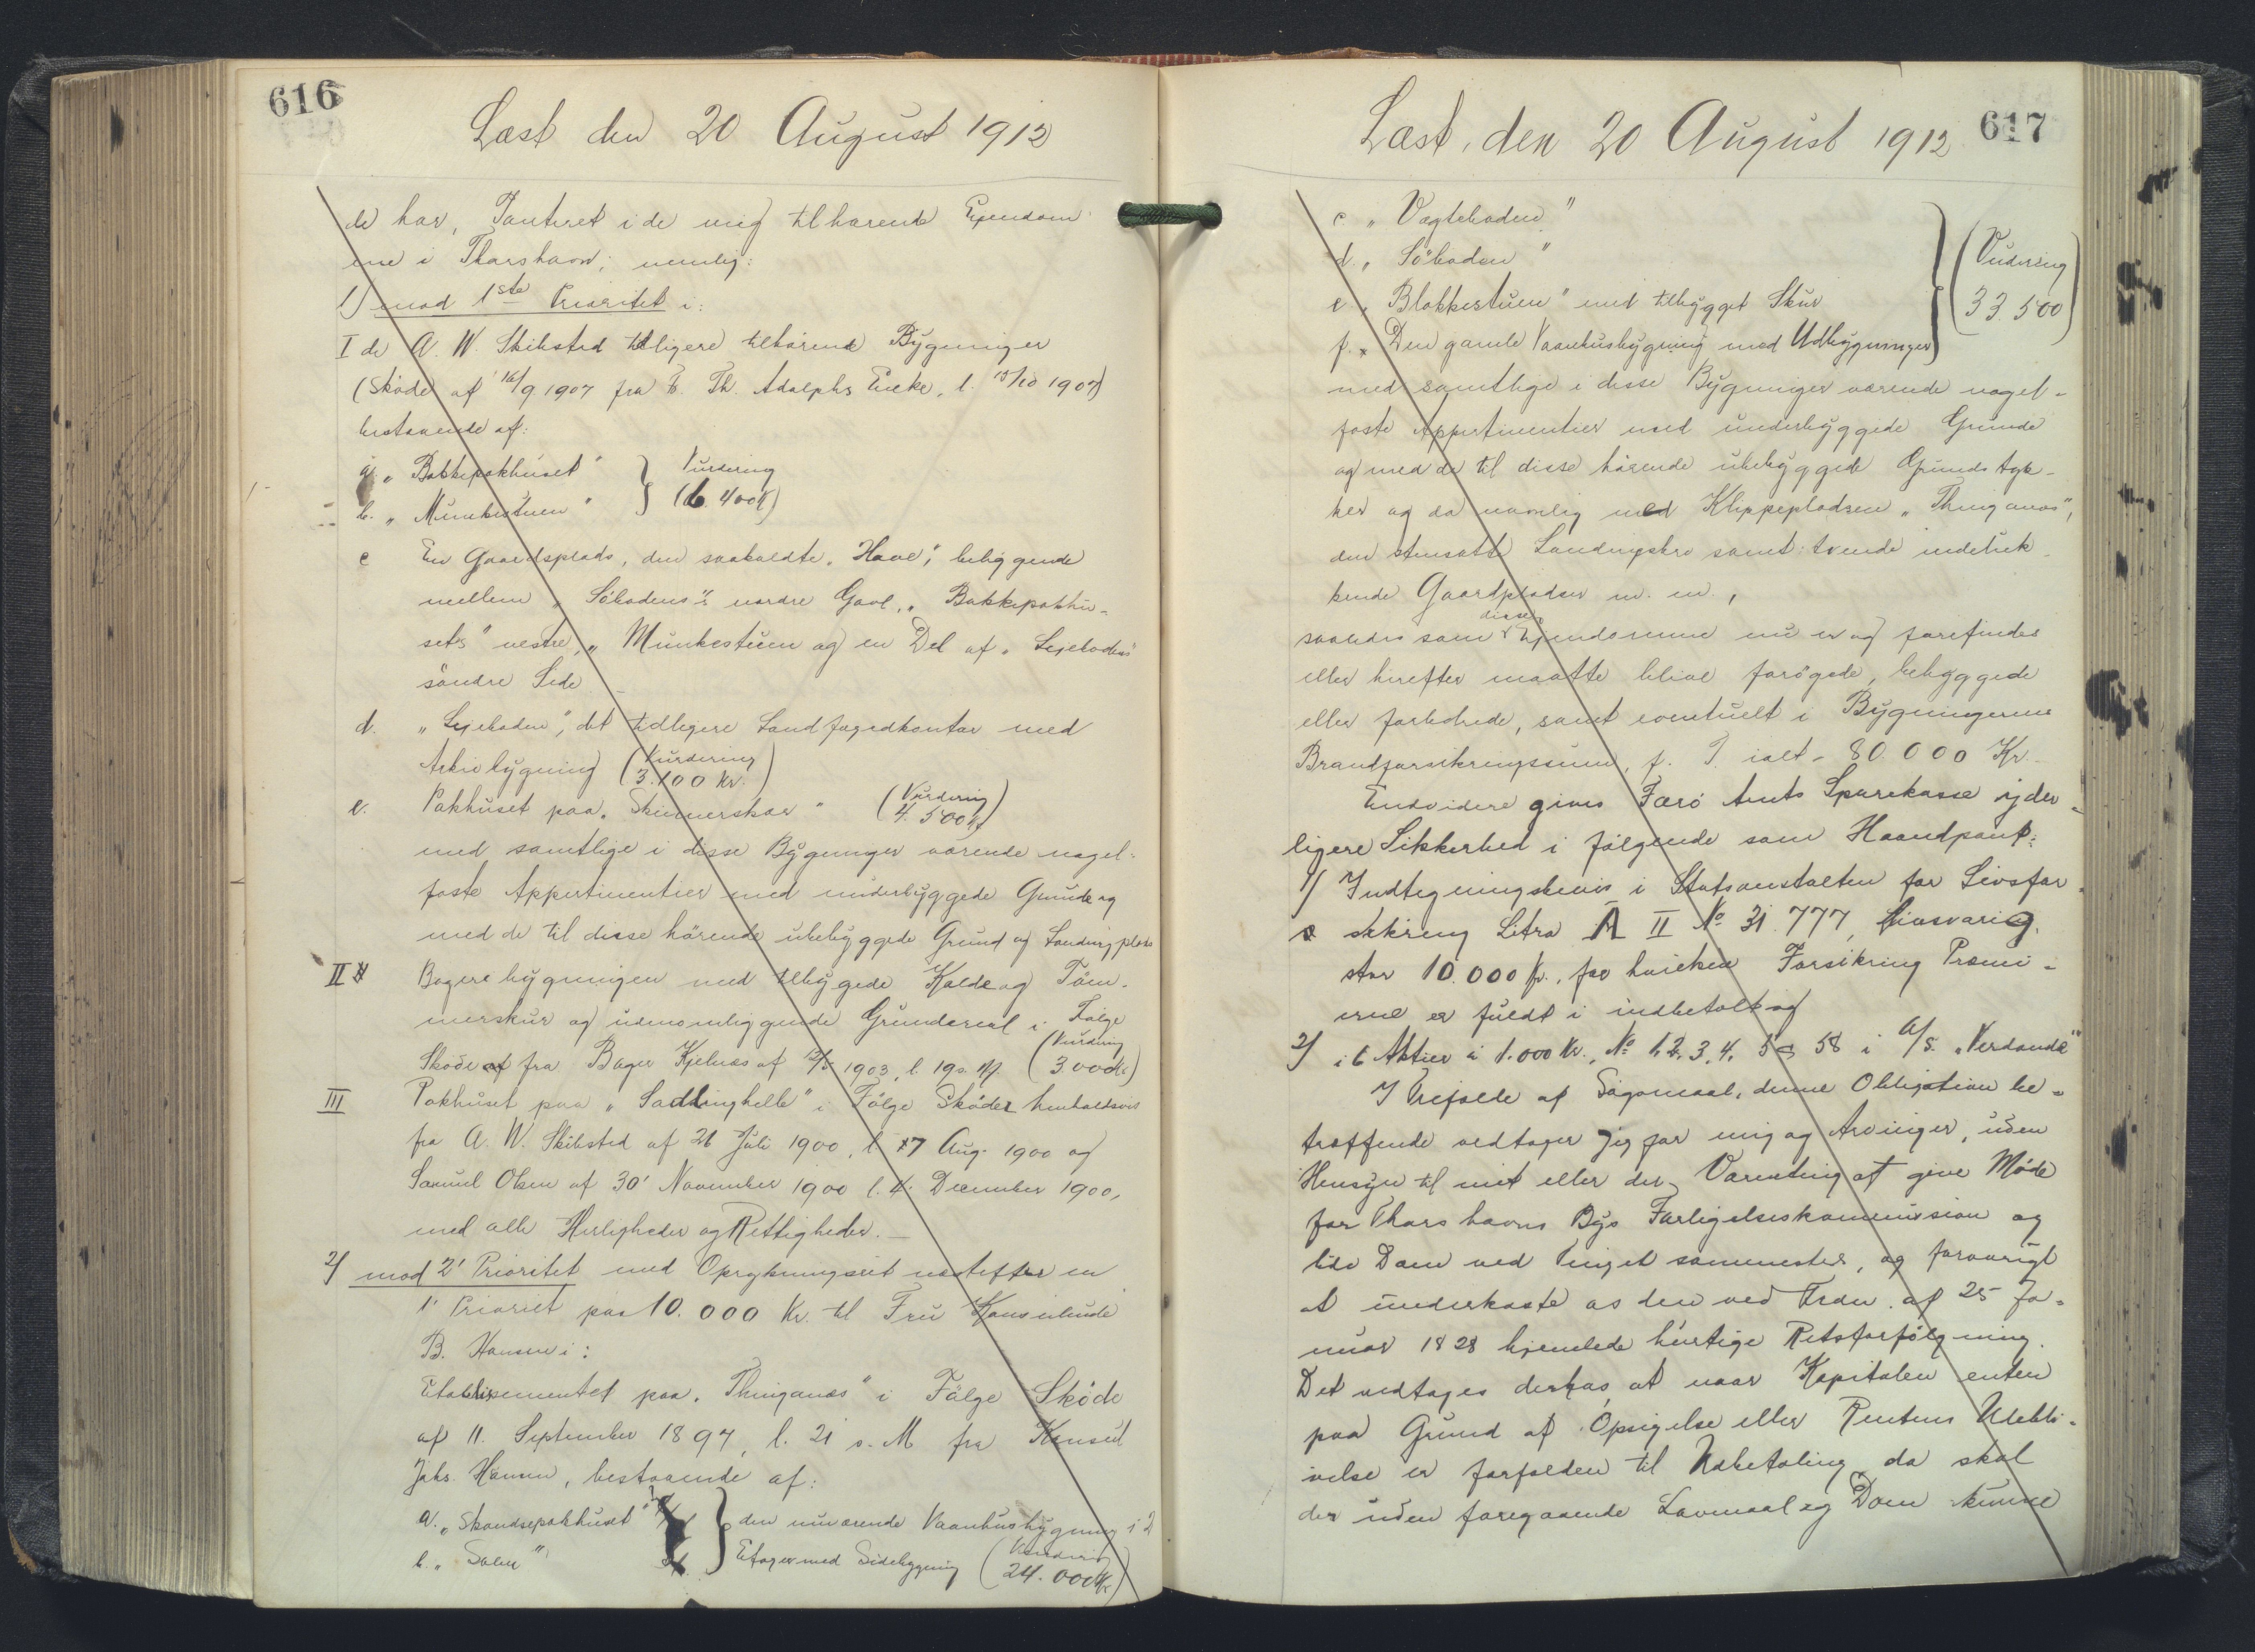 616
Læst den 20 August 1912
de har, Panteret i de mig tilhørende Ejendom
ene i Thorshavn, nemlig:
1) mod 1ste Prioritet i:
I de A. W. Skibsted tidligere tilhørende Bygninger
(Skøde af 16/9 1907 fra Th. Adolphs Enke, l. 15/10 1907)
bestaaende af:
a. „Bakkepakhuset" } Vurdering
b. „Munkestuen" } (6.400 K)
c En Gaardsplads, den saakaldte „Have", beliggende
mellem „Söbodens" nordre Gavl, „Bakkepakhu-
sets" vestre, „Munkestuen og en Del af „Lejebodens"
söndre Side
d. „Lejeboden", det tidligere Landfogedkontor med
Arkivbygning (Vurdering
3.100 Kr.)
e. Pakhuset paa „Skinnerskær" (Vurdering
4.500 Kr)
med samtlige i disse Bygninger værende nagel-
faste Appertinentier med underbyggede Grunde og
med de til disse hörende ubebyggede Grund og Landingplads
II Bagerebygningen med tilbyggede Kalde og Töm-
merskur og udenomliggende Grundareal i Følge
Sköde fra Bager Kjelnæs af 2/5 1903, l. 19 s. M. (Vurdering
3.000 Kr)
III Pakhuset paa „Sadlinghelle" i Fölge Sköder henholdsvis
fra A. W. Skibsted af 26 Juli 1900, l. 7 Aug. 1900 og
Samuel Olsen af 30' November 1900 l. 4. December 1900,
med alle Herligheder og Rettigheder. —
2) mod 2' Prioritet med Oprykningsret næstefter en
1' Prioritet paa 10.000 Kr. til Fru Konsulinde
B. Hansen i:
Etablissementet paa „Thinganæs" i Fölge Sköde
af 11. September 1897, l. 21 s. M fra Konsul
Johs. Hansen, bestaaende af:
a. „Skandsepakhuset" } den nuværende Vaanhusbygning i 2
b. „Salen" } Etager med Sidebygning (Vurdering
24.000 Kr)
617
Læst, den 20 August 1912
c „Vagteboden"
d. „Söboden"
e „Blokkestuen" med tilbygget Skur
f. „Den gamle Vaanhusbygning med Udbygninger
(Vurdering
33.500)
med samtlige i disse Bygninger værende nagel-
faste Appertinentier med underbyggede Grunde
og med de til disse hörende ubebyggede Grundstyk-
ker og da navnlig med Klippepladsen „Thinganæs",
den stensatte Landingsbro samt tvende indeluk-
kende Gaardpladser m. m.,
saaledes som disse Ejendomme nu er og forefindes
eller herefter maatte blive forögede, bebyggede
eller forbedrede, samt eventuelt i Bygningerne
Brandforsikringssum, p. T. ialt - 80.000 Kr.
Endvidere gives Færö Amts Sparekasse yder-
ligere Sikkerhed i fölgende som Haandpant:
1) Indtegningsbevis i Statsanstalten for Livsfor-
sikring Litra A II No 31.777, Livsvarig
stor 10.000 Kr., for hvilken Forsikring Præmi-
erne er fuldt indbetalt og
2) i 6 Aktier à 1.000 Kr., No 1, 2, 3, 4, 5 og 58 i A/S. „Verdande"
I Tilfælde af Sögsmaal, denne Obligation be-
træffende vedtager jeg for mig og Arvinger, uden
Hensyn til mit eller deres Værneting at give Möde
for Thorshavns Bys Forligelseskommission og
lide Dom ved Tinget sammesteds, og forövrigt
at underkaste os den ved Frdn. af 25 Ja-
nuar 1828 hjemlede hurtige Retsforfölgning.
Det vedtages derhos, at naar Kapitalen enten
paa Grund af Opsigelse eller Rentens Udebli-
velse er forfalden til Udbetaling da skal
der uden foregaaende Lovmaal og Dom kunne